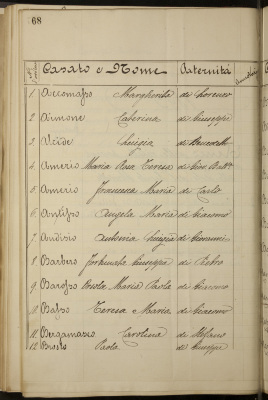 68
Casato e Nome Paternità
1 Accomasso Margherita di Lorenzo
2 Aimone Caterina di Giuseppe
3 Alcide Luigia di Benedetto
4 Amerio Maria Rosa Teresa di Gio. Batta
5 Amerio Francesca Maria di Carlo
6 Antifso Angela Maria di Giacomo
7 Audisio Antonia Luigia di
8 Barbero Fortunata Giuseppa di Pietro
9 Barosso Maria Paola di Giacomo
10 Basso Teresa e Maria di Giacomo
11 Bergamasco Carolina di Stefano
12 Paola di Giuseppe